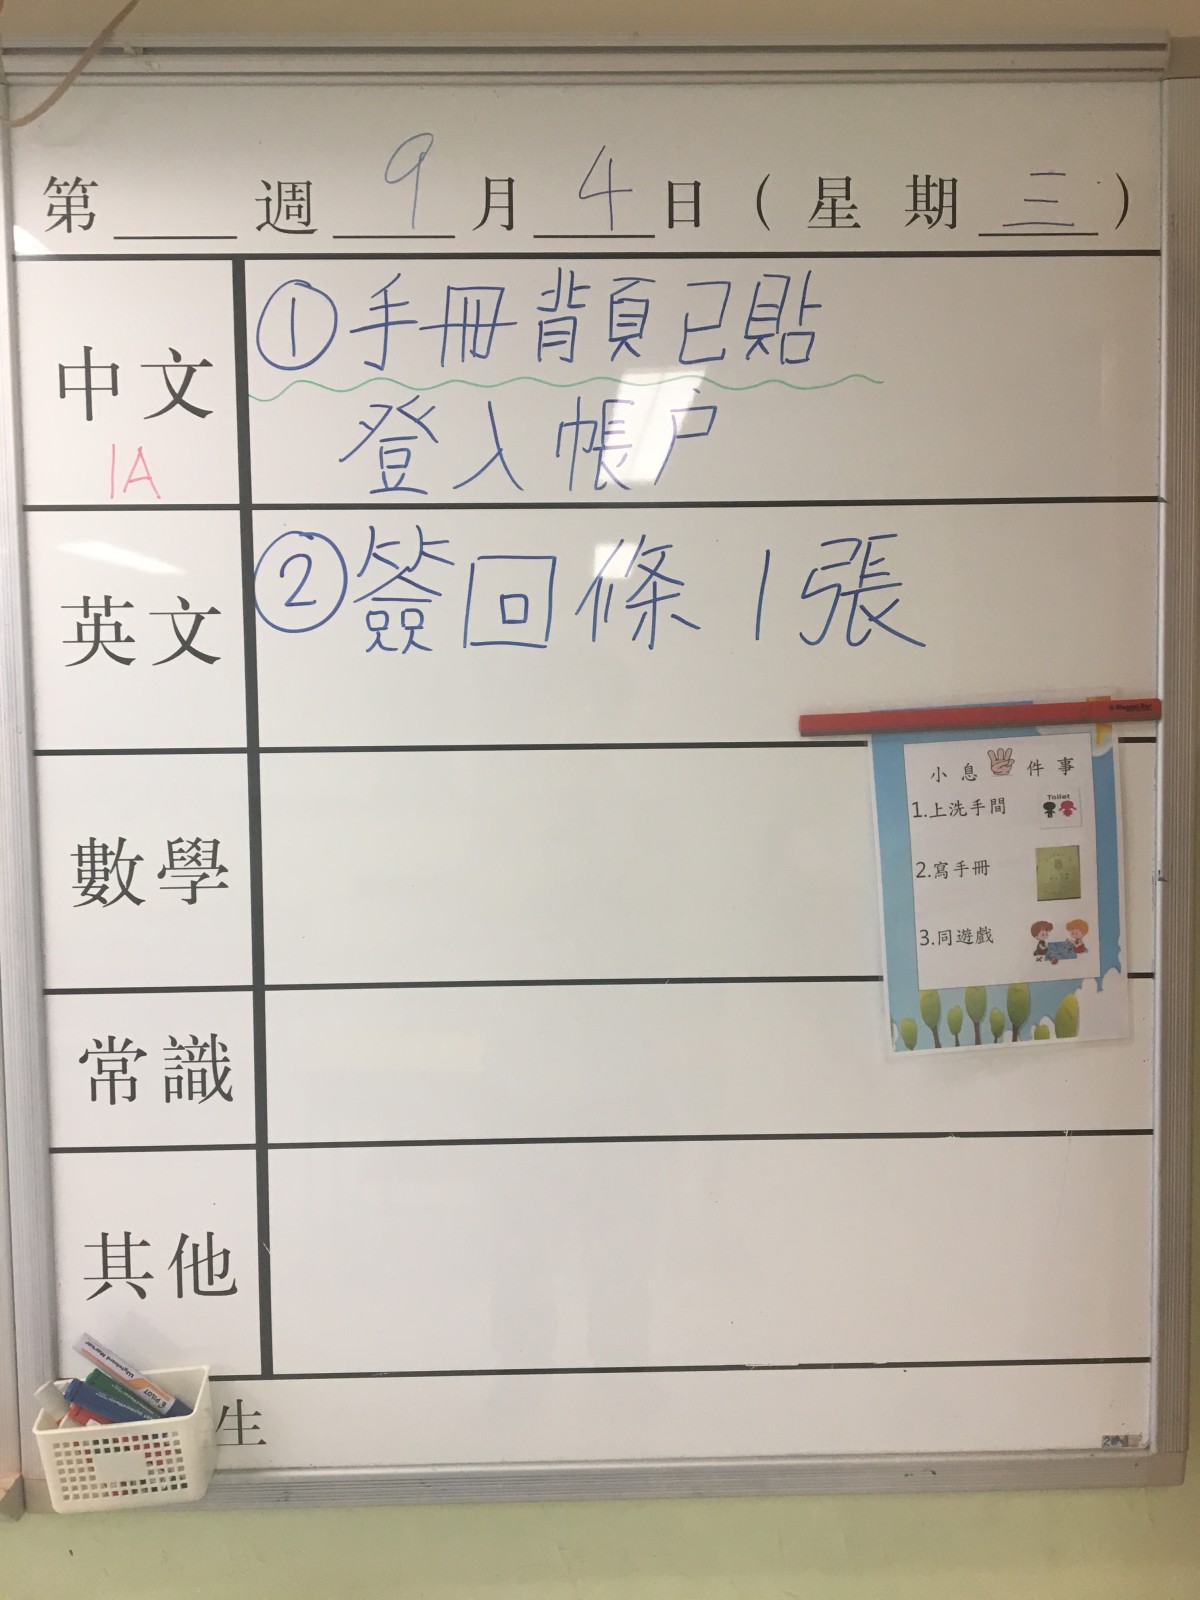 第 週 9 月 4 日 ( 星 期 三 )
中文
1A
①手冊背頁已貼
登入帳户
英文
②簽回條1張
數學
小息 件事
Toilet
1.上洗手間
2.寫手冊
3.同遊戲
常識
其他
生
PILOT